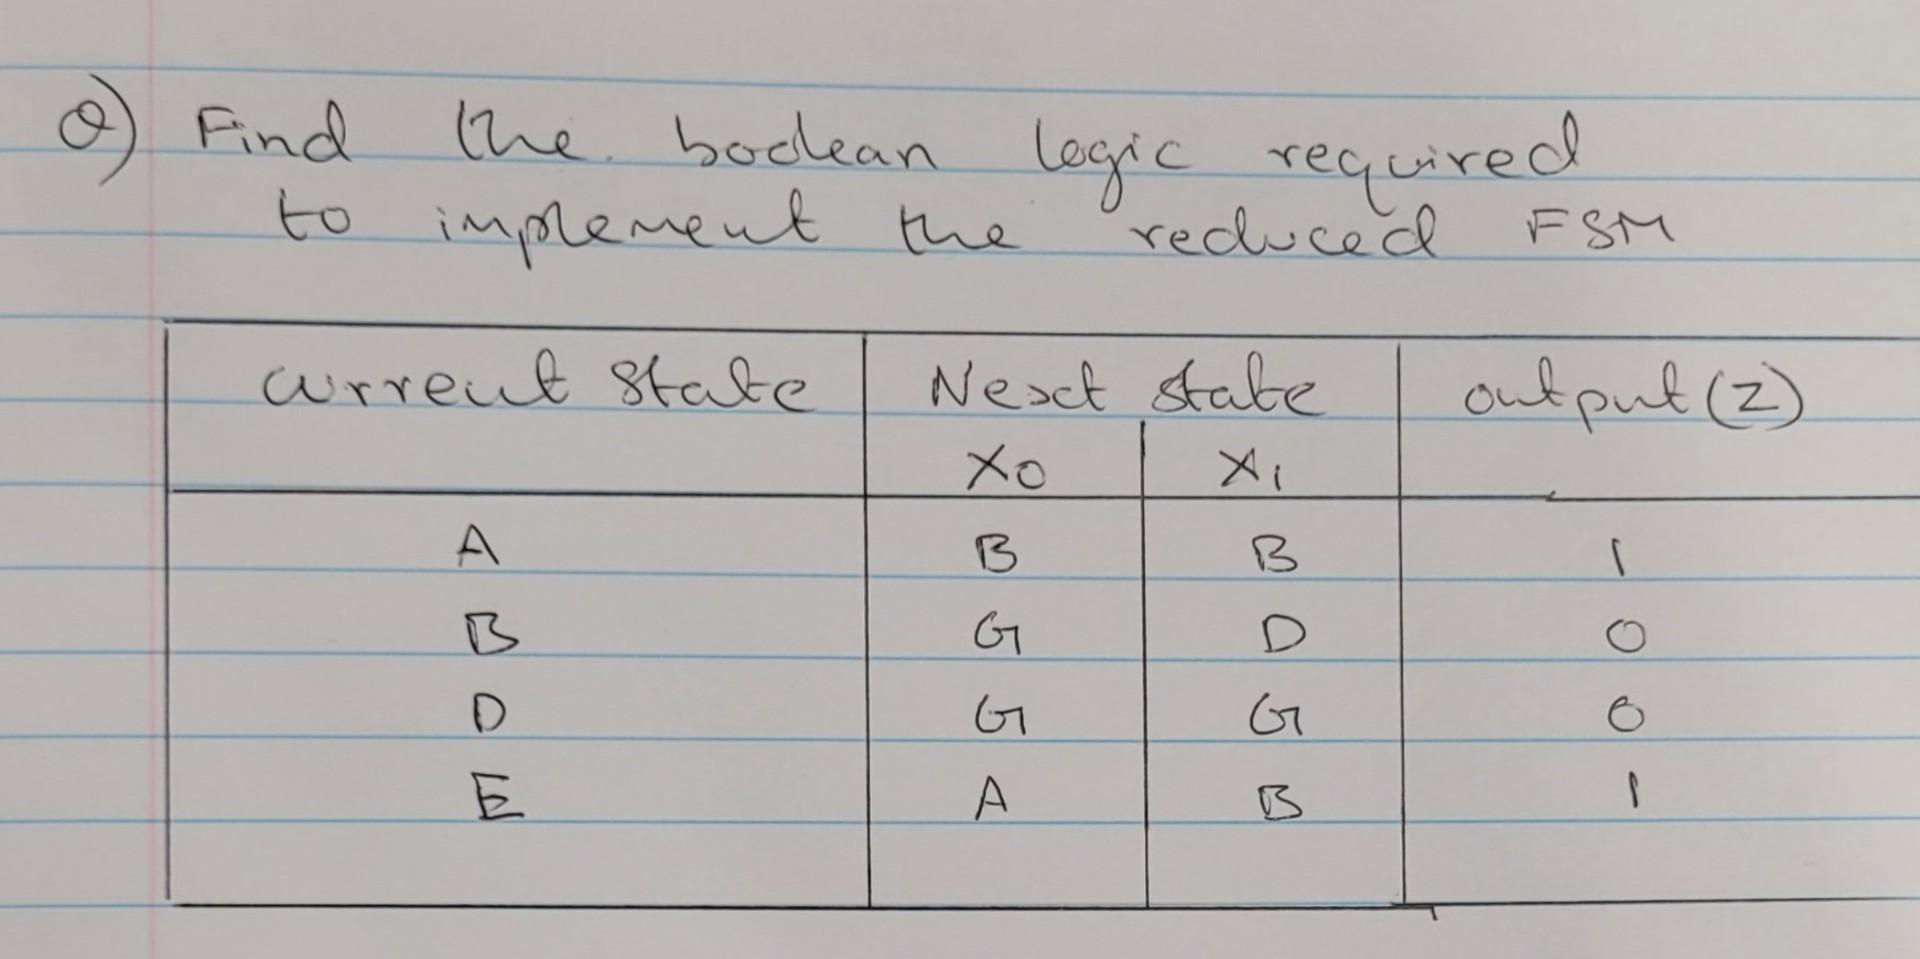 Q) Find the boolean logic required
to implement the reduced FSM
Current State Next state output (Z)
X0 X1
A B B 1
B G D 0
D G G 0
E A B 1